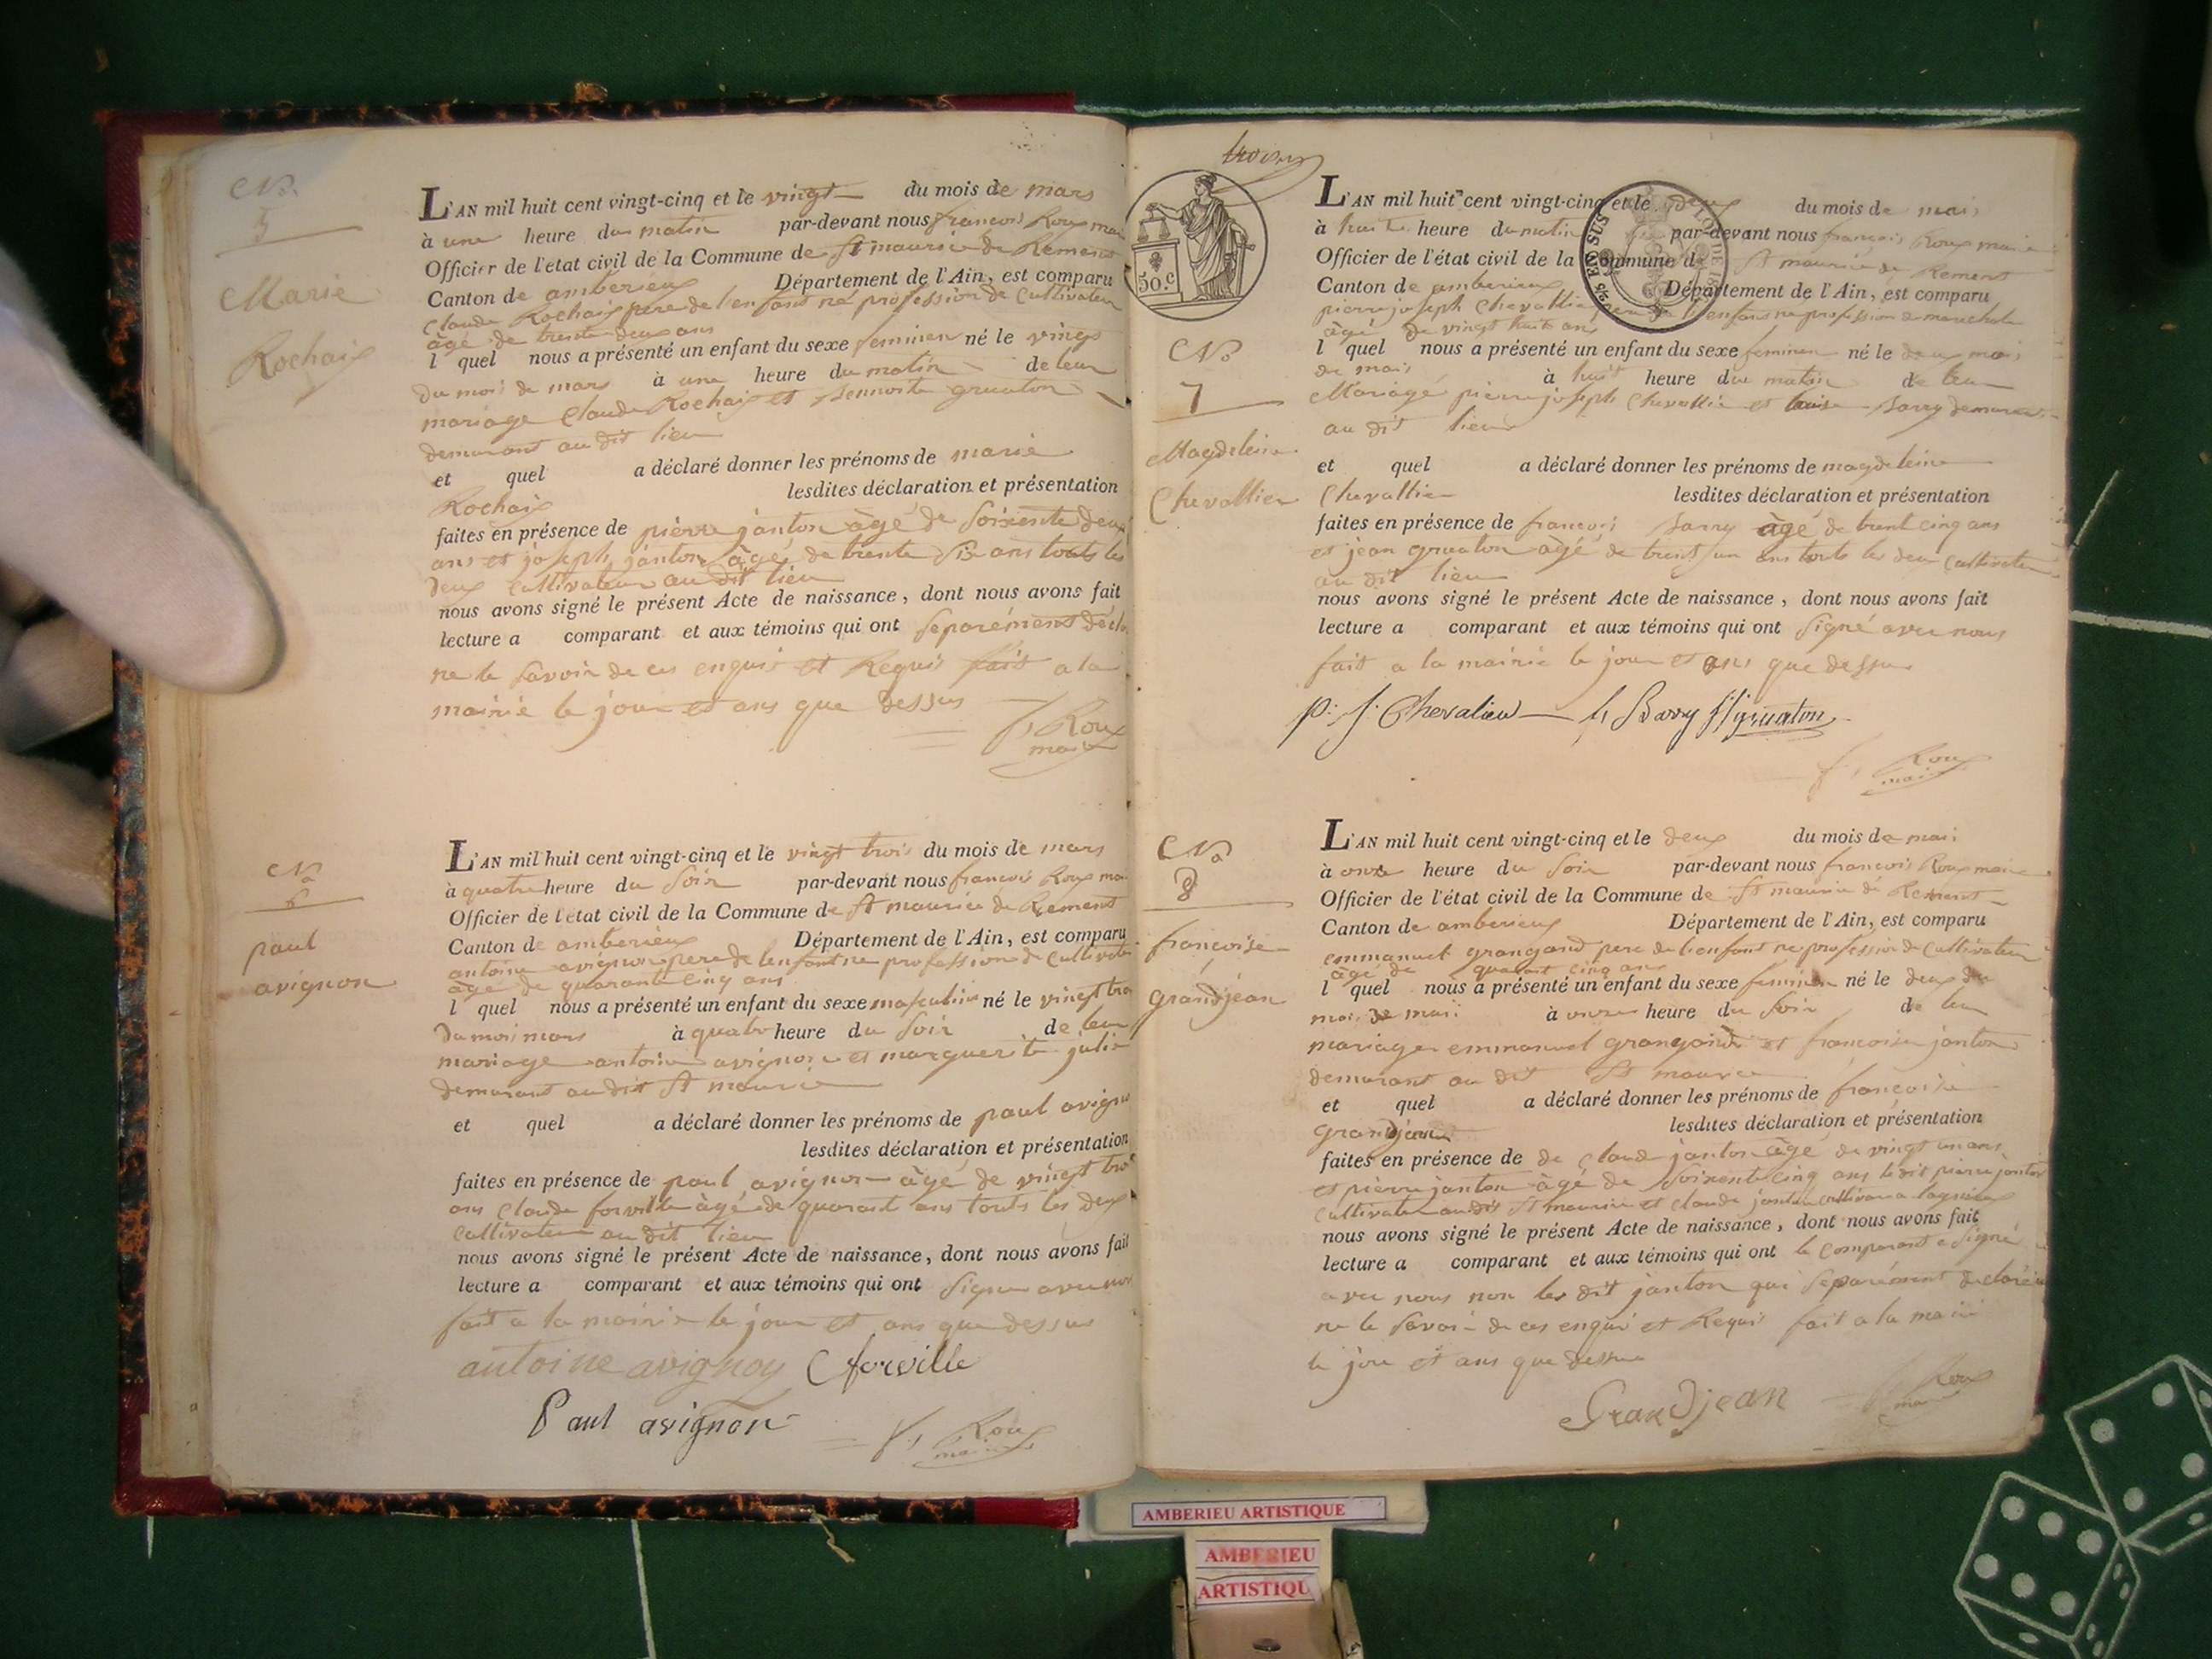 No
5
Marie
Rochaix
L'AN mil huit cent vingt-cinq et le vingt du mois de mars
à une heure du matin par-devant nous françois Roux
Officier de l'état civil de la Commune de St maurice de Remens
Canton de amberieux Département de l'Ain, est comparu
Claude Rochaix pere de l'enfant né profession de Cultivateur
âgé de trente deux ans
l quel nous a présenté un enfant du sexe feminin né le vingt
du mois de mars à une heure du matin de leur
mariage Claude Rochaix et gruaton
demurant au dit lieu
et quel a déclaré donner les prénoms de marie
Rochaix lesdites déclaration et présentation
faites en présence de pierre janton âgé de Soixente deux
ans et joseph janton âgé de trente Six ans touts les
deux Cultivateur au dit lieu
nous avons signé le présent Acte de naissance, dont nous avons fait
lecture a comparant et aux témoins qui ont Separément
ne le Savoir de ces enquis et Requis fait a la
mairie le jour et ans que dessus
f, Roux
maire
No
6
paul
avignon
L'AN mil huit cent vingt-cinq et le vingt trois du mois de mars
à quatre heure du Soir par-devant nous françois Roux
Officier de l'état civil de la Commune de St maurice de Remens
Canton de amberieux Département de l'Ain, est comparu
antoine avignon pere de lenfant ne profession de
âgé de quarante Cinq ans
l quel nous a présenté un enfant du sexe masculin né le vingt
du mois mars à quatre heure du Soir de leur
mariage antoine avignon et marguerite julie
demurant au dit St maurice
et quel a déclaré donner les prénoms de paul
lesdites déclaration et présentation
faites en présence de paul avignon âgé de vingt
ans Claude forville âgé de quarant ans touts les deux
Cultivateur au dit lieu
nous avons signé le présent Acte de naissance, dont nous avons fait
lecture a comparant et aux témoins qui ont Signe avec
fait a la mairie le jour et ans que dessus
antoine avignon C forville
Paul avignon
f, Roux
maire
50.C
EN SUS
LOI DE
No
7
Magdeleine
Chevallier
L'AN mil huit cent vingt-cinq et le deux du mois de mai
à huit heure du matin par-devant nous françois Roux maire
Officier de l'état civil de la Commune de St maurice de Remens
Canton de amberieux Département de l'Ain, est comparu
pierre joseph Chevallier enfant ne profession de
âgé de vingt huit ans
l quel nous a présenté un enfant du sexe feminin né le deux
de mai à huit heure du matin de leur
Mariage pierre joseph Chevallier et Sarry
au dit lieu
et quel a déclaré donner les prénoms de magdeleine
Chevallier lesdites déclaration et présentation
faites en présence de françois Sarry âgé de trent cinq ans
et jean gruaton âgé de trent un ans touts les deux Cultivateur
au dit lieu
nous avons signé le présent Acte de naissance, dont nous avons fait
lecture a comparant et aux témoins qui ont Signé avec nous
fait a la mairie le jour et ans que dessus
p. j. Chevalier f Sarry gruaton
f, Roux
maire
No
8
françoise
grandjean
L'AN mil huit cent vingt-cinq et le deux du mois de mai
à onze heure du Soir par-devant nous françois Roux maire
Officier de l'état civil de la Commune de St maurice de Remens
Canton de amberieux Département de l'Ain, est comparu
emmanuel pere de lenfant ne profession de Cultivateur
âgé de quarant cinq ans
l quel nous a présenté un enfant du sexe feminin né le deux du
mois de mai à onze heure du Soir de leur
mariage emmanuel et françoise janton
demurant au dit St maurice
et quel a déclaré donner les prénoms de françoise
grandjean lesdites déclaration et présentation
faites en présence de de Claude janton âgé de vingt un ans
et pierre janton âgé de Soixente Cinq ans le dit pierre janton
Cultivateur au dit St maurice et Claude janton
nous avons signé le présent Acte de naissance, dont nous avons fait
lecture a comparant et aux témoins qui ont le Comparant a Signé
avec nous non les dit janton qui Separément
ne le Savoir de ces enquis et Requis fait a la mairie
le jour et ans que dessus
Grandjean
f, Roux
maire
AMBERIEU ARTISTIQUE
AMBERIEU
ARTISTIQU